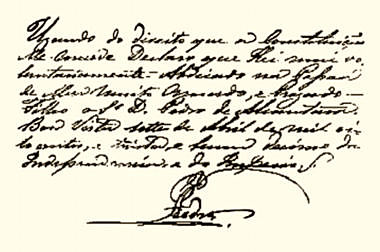 Uzando do direito que a Constituição
Me concede Declaro que Hei mui vo-
luntariamente Abdicado na Pessoa
de Meu muito Amado, e Prezado
Filho o Sr. D. Pedro de Alcantara.
Boa Vista sette de Abril de mil oi-
to centos, e trinta, e hum, decimo da
Independencia e do Imperio.
Pedro